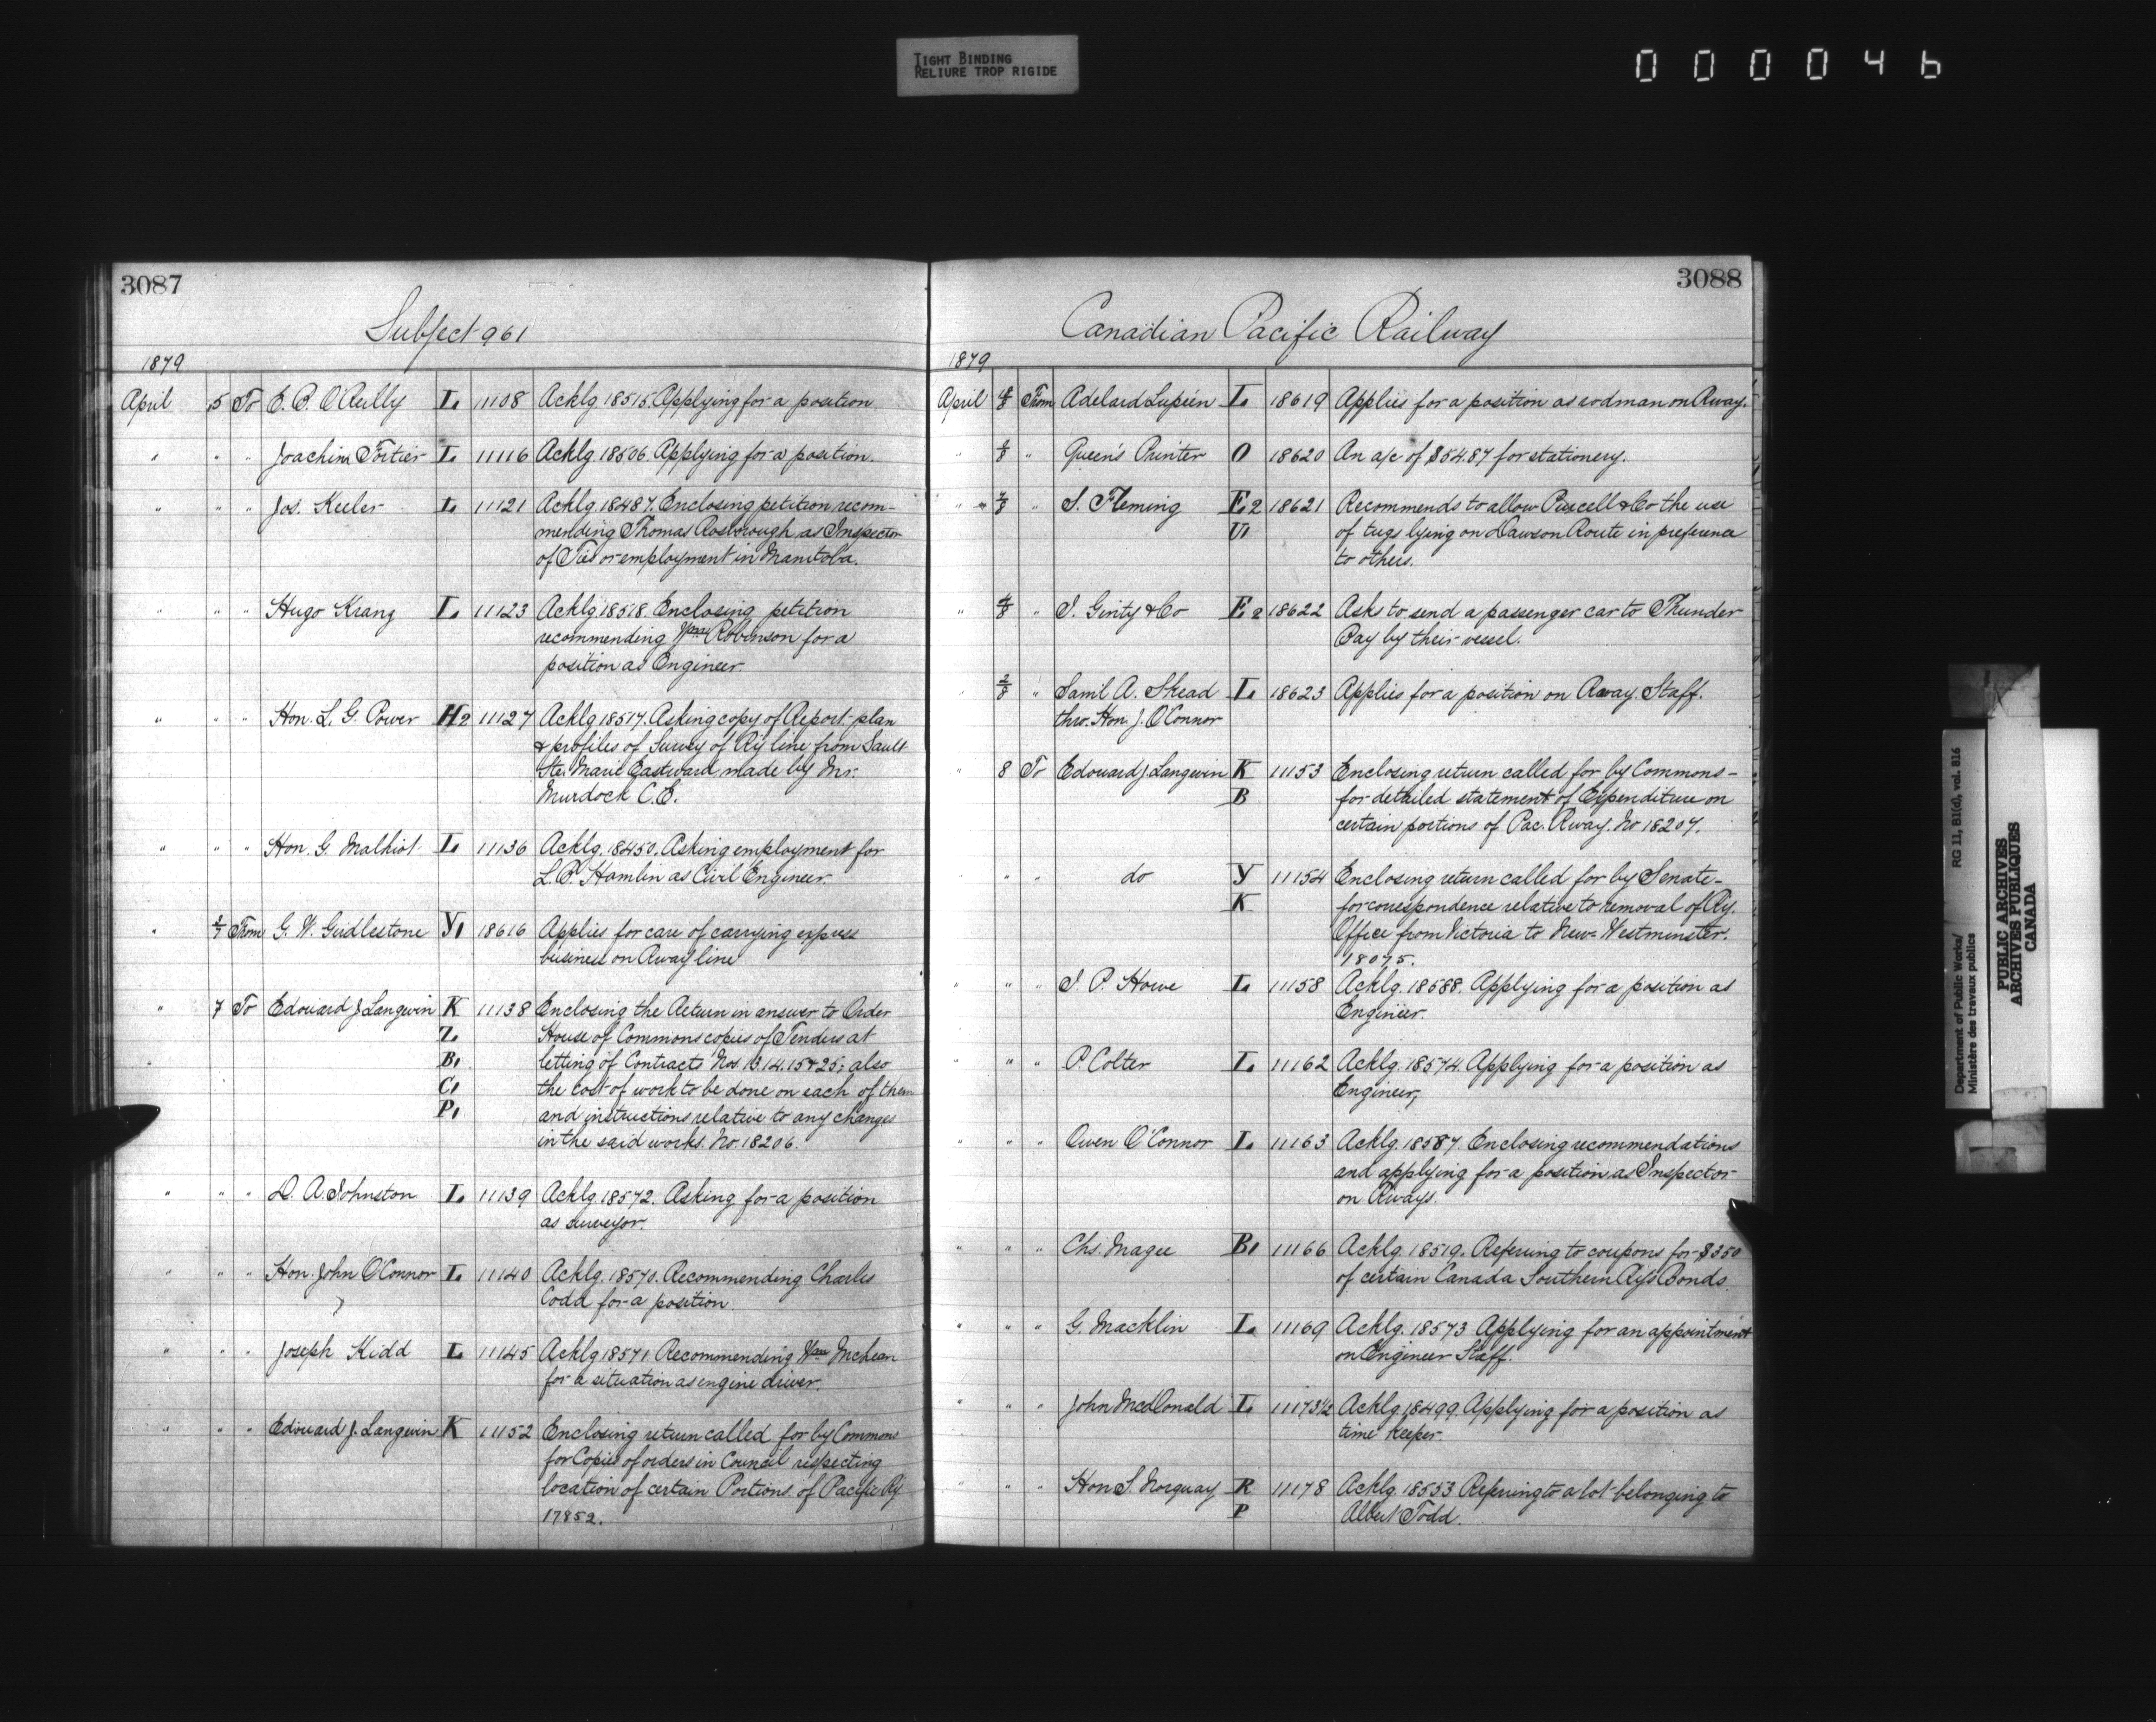 TIGHT BINDING
RELIURE TROP RIGIDE
000046
3087
Subject 961
1879
April 5 To E. B. O'Reilly L. 11108 Acklg 18515. Applying for a position.
" " " Joachim Fortier L. 11116 Acklg. 18506. Applying for a position.
" " " Jos. Keeler L. 11121 Acklg. 18487. Enclosing petition recom-
mending Thomas Rosborough as Inspector
of Ties or employment in Manitoba.
" " " Hugo Kranz L. 11123 Acklg 18518. Enclosing petition
recommending Wm Robinson for a
position as Engineer.
" " " Hon. L. G. Power H2 11127 Acklg 18517. Asking copy of Report-plan
& profiles of Survey of Ry line from Sault
Ste. Marie Eastward made by Mr.
Murdock C.E.
" " " Hon. G. Malhiot L. 11136 Acklg. 18450. Asking employment for
L. P. Hamlin as Civil Engineer.
" 2/7 From G. W. Girdlestone Y1 18616 Applies for care of carrying express
business on Rway line
" 7 To Edouard J. Langevin K 11138 Enclosing the Return in answer to Order
Z. House of Commons copies of Tenders at
B1 letting of Contracts Nos. 13.14.15 & 25; also
C1 the cost of work to be done on each of them
P1 and instructions relative to any changes
in the said works. No. 18206.
" " " D. A. Johnston L. 11139 Acklg. 18572. Asking for a position
as surveyor.
" " " Hon. John O'Connor L 11140 Acklg. 18570. Recommending Charles
Codd for a position
" " " Joseph Kidd L 11145 Acklg 18571. Recommending Wm McLean
for a situation as engine driver.
" " " Edouard J. Langevin K 11152 Enclosing return called for by Commons
for Copies of orders in Council respecting
location of certain Portions of Pacific Ry
17852.
3088
Canadian Pacific Railway
1879
April 4/8 From Adelard Lupien L. 18619 Applies for a position as rodman on Rway.
" /8 " Queen's Printer O 18620 An a/c of $54.87 for stationery.
" " 7/8 " S. Fleming E2 18621 Recommends to allow Purcell & Co the use
U1 of tugs lying on Dawson Route in preference
to others.
" 4/8 " J. Ginty & Co E2 18622 Asks to send a passenger car to Thunder
Bay by their vessel.
" 2/8 " Saml A. Skead L. 18623 Applies for a position on Rway. Staff.
thro. Hon. J. O'Connor
" 8 To Edouard J. Langevin K 11153 Enclosing return called for by Commons-
B for detailed statement of Expenditure on
certain portions of Pac. Rway. No 18207.
" " " do Y 11154 Enclosing return called for by Senate-
K for correspondence relative to removal of Ry.
Office from Victoria to New-Westminster.
18075.
" " " J. P. Howe L. 11158 Acklg. 18588. Applying for a position as
Engineer.
" " " P. Colter L. 11162 Acklg. 18574. Applying for a position as
Engineer,
" " " Owen O'Connor L. 11163 Acklg. 18587. Enclosing recommendations
and applying for a position as Inspector
on Rways.
" " " Chs. Magee B1 11166 Acklg. 18519. Referring to coupons for $350
of certain Canada Southern Ry's Bonds.
" " " G. Macklin L. 11169 Acklg. 18573 Applying for an appointment
on Engineer Staff.
" " " John McdDonald L 11173½ Acklg. 18499. Applying for a position as
time keeper.
" " " Hon S. Norquay R 11178 Acklg. 18553 Referring to a lot belonging to
P Albert Todd.
Department of Public Works/ RG 11, B1(d), vol. 816
Ministère des travaux publics
PUBLIC ARCHIVES
ARCHIVES PUBLIQUES
CANADA